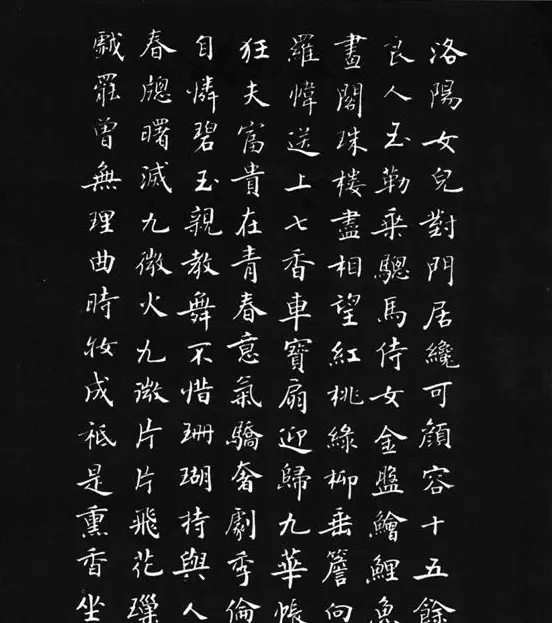 洛陽女兒對門居纔可顏容十五餘
良人玉勒乘驄馬侍女金盤鱠鯉魚
畫閣珠樓盡相望紅桃綠柳垂簷向
羅幃送上七香車寶扇迎歸九華帳
狂夫富貴在青春意氣驕奢劇季倫
自憐碧玉親教舞不惜珊瑚持與人
春牕曙滅九微火九微片片飛花璅
戲罷曾無理曲時妝成祗是熏香坐